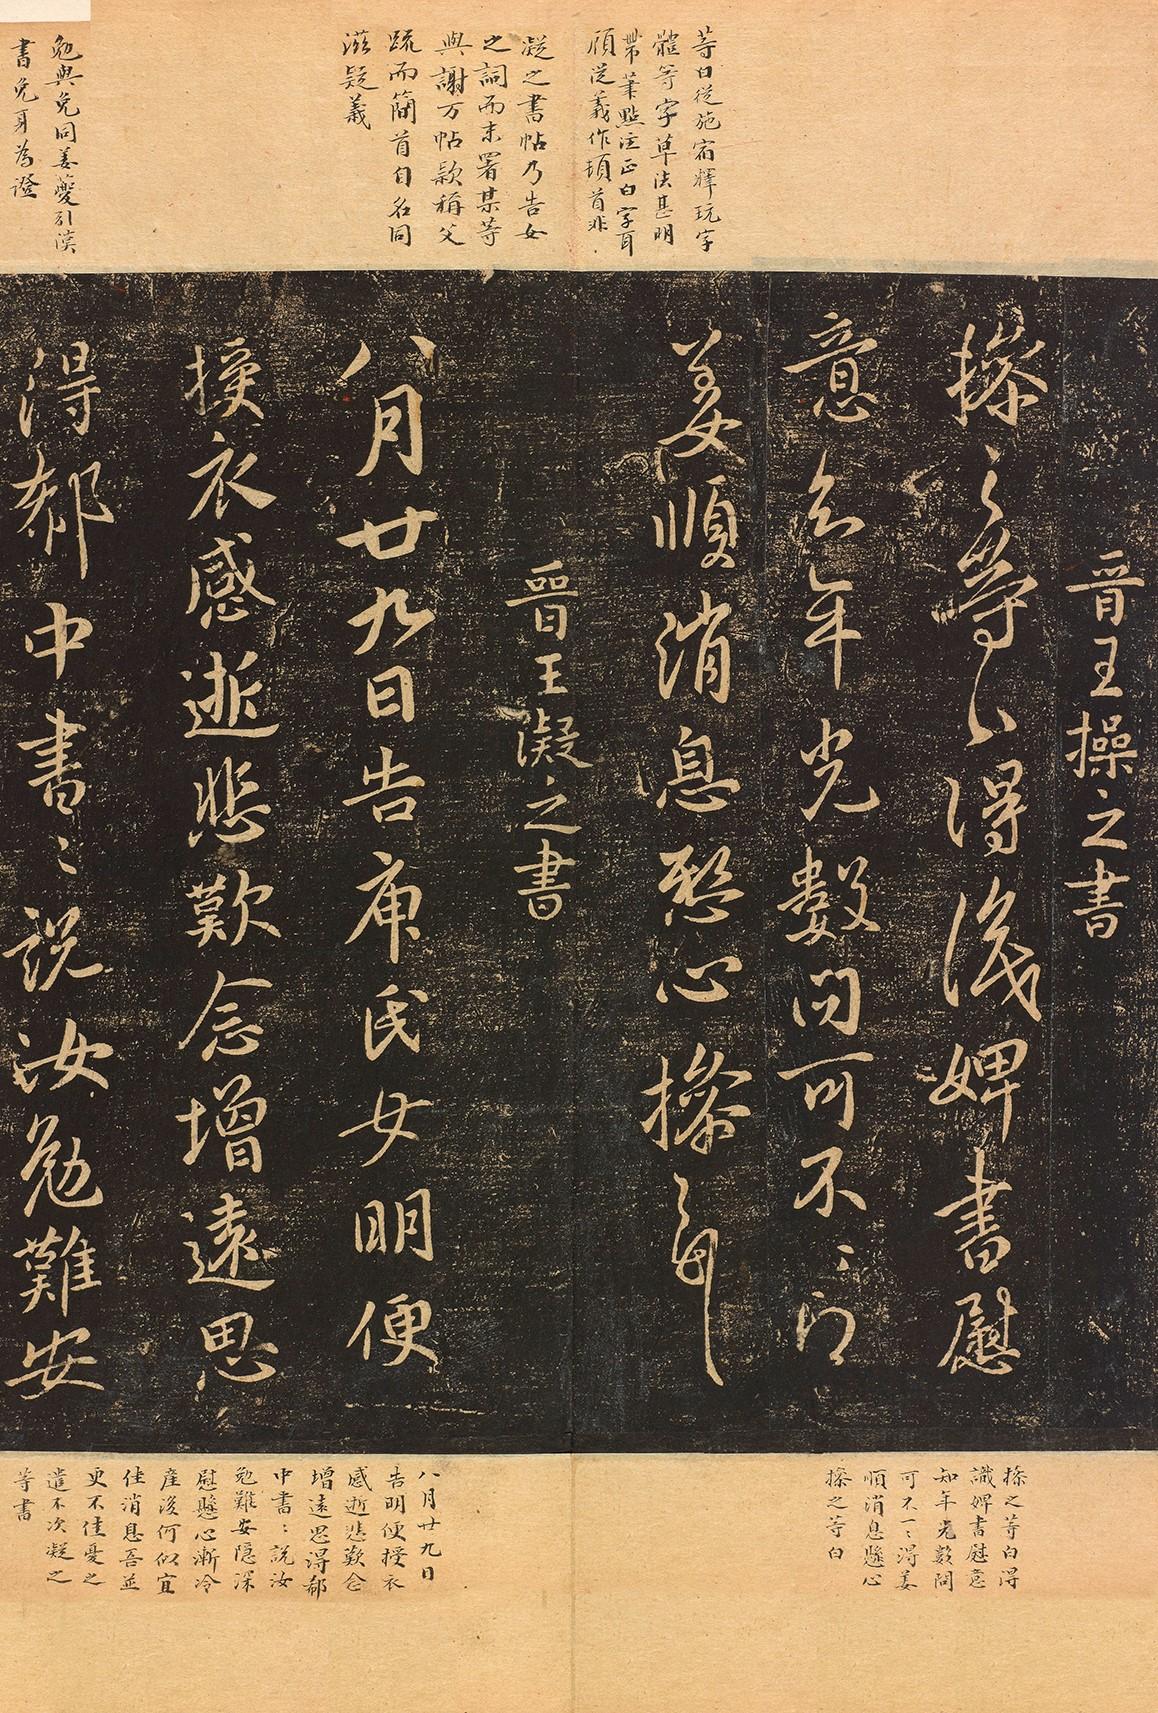 等白從施宿釋玩字
體等字草法甚明
帶筆點注正白字耳
頋從義作頓首非
凝之書帖乃告女
之詞而末署某等
與謝万帖款稱父
疏而簡首自名同
滋疑義
勉與免同姜夔引漢
書免身為證
晉王操之書
操之等白得識婢書慰
意知年光數問可不一一得
姜順消息懸心操之等白
晉王凝之書
八月廿九日告庾氏女明便
授衣感逝悲歎念增遠思
得郗中書書說汝勉難安
操之等白得
識婢書慰意
知年光數問
可不一一得姜
順消息懸心
操之等白
八月廿九日
告明便授衣
感逝悲歎念
增遠思得郗
中書書說汝
勉難安隱深
慰懸心漸冷
產後何似宜
佳消息吾並
更不佳憂之
遣不次凝之
等書